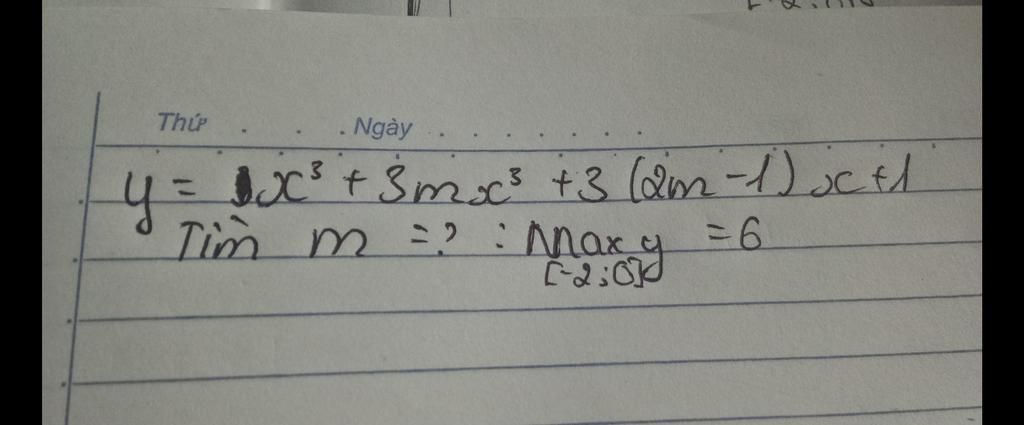 Thứ . . . Ngày . . . . . . .
y = x³ + 3mx³ + 3(2m-1)x+1
Tìm m = ? : Max y = 6
[-2;0]